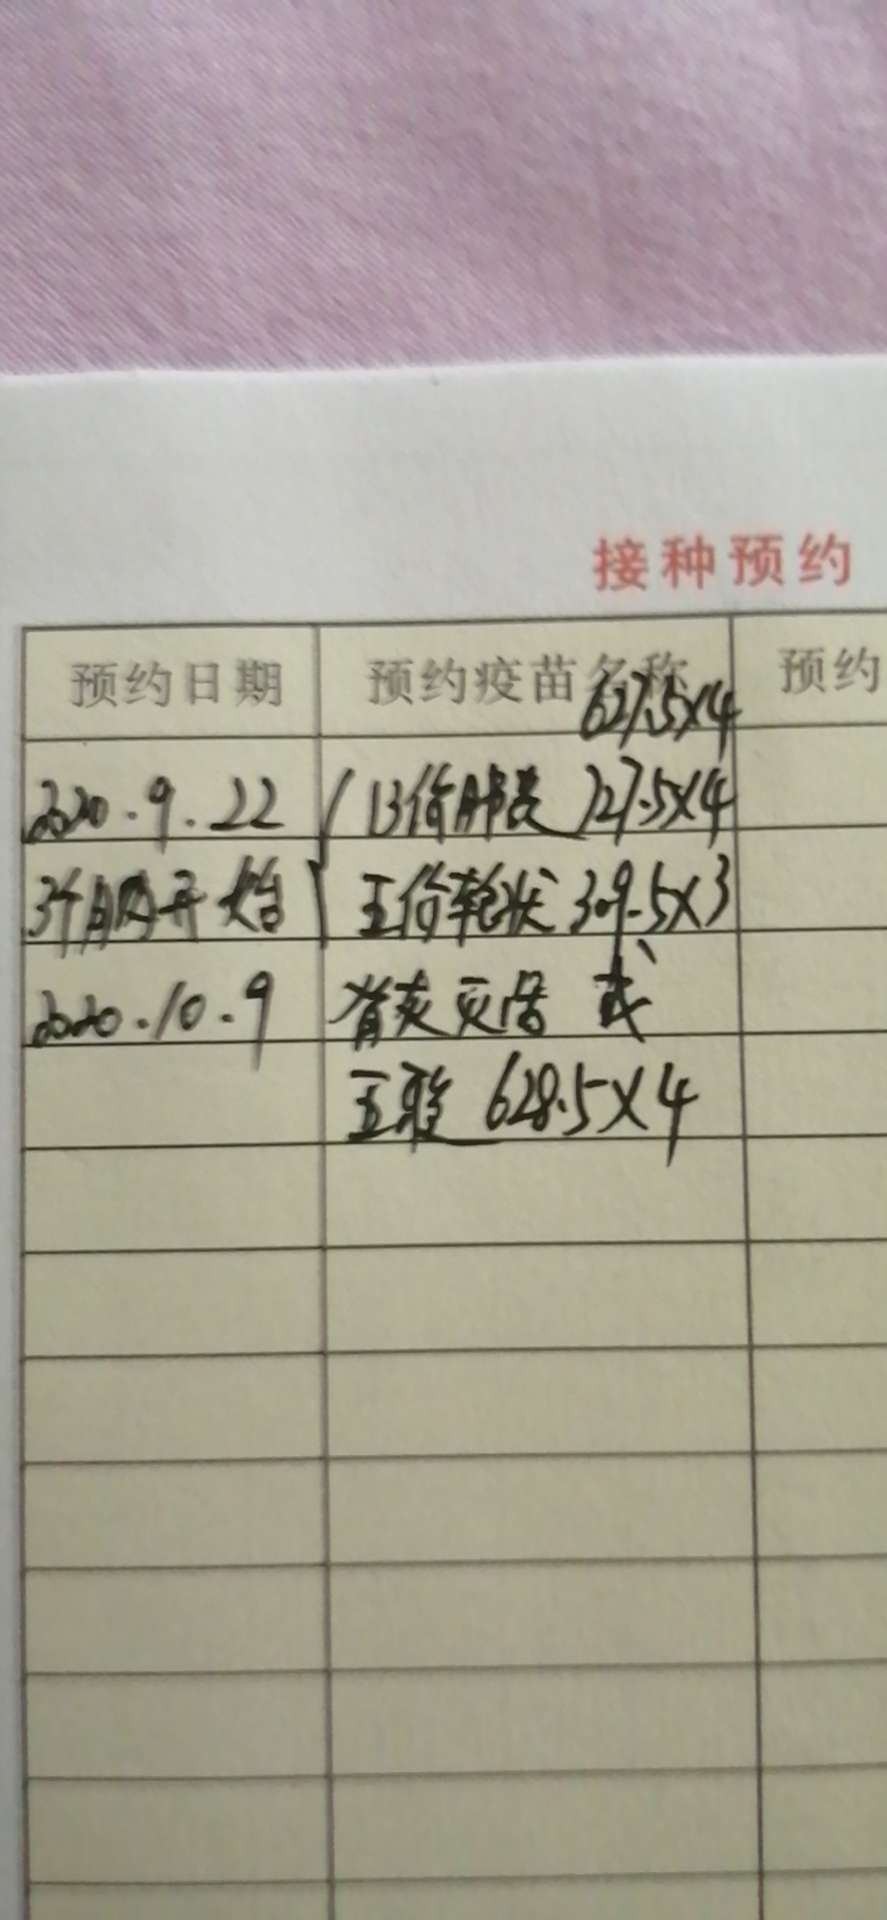 接种预约
预约日期 预约疫苗名称 预约
627.5×4
2020.9.22 13价肺炎 727.5×4
3个月内开始 五价轮状 309.5×3
2020.10.9 脊灰 或
五联 628.5×4